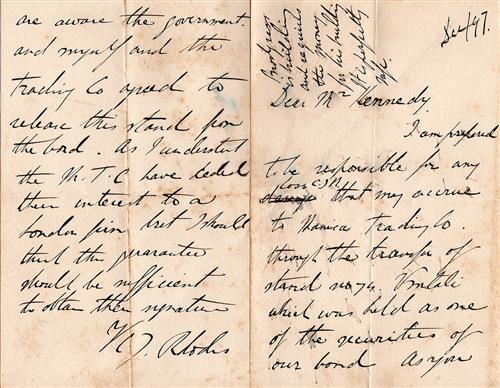 Dec/97.
Dear Mr Kennedy.
I am prepared
to be responsible for any
loss CJR that may accrue
to Manica Trading Co
through the transfer of
stand no 74. Umtali
which was held as one
of the securities of
our bond As you
are aware the government.
and myself and the
Trading Co agreed to
release this stand from
the bond. As I understand
the M.T.C have ceded
their interest to a
London firm but I should
think this guarantee
should be sufficient
to obtain their signature
C J. Rhodes
and requires
the money
for his building